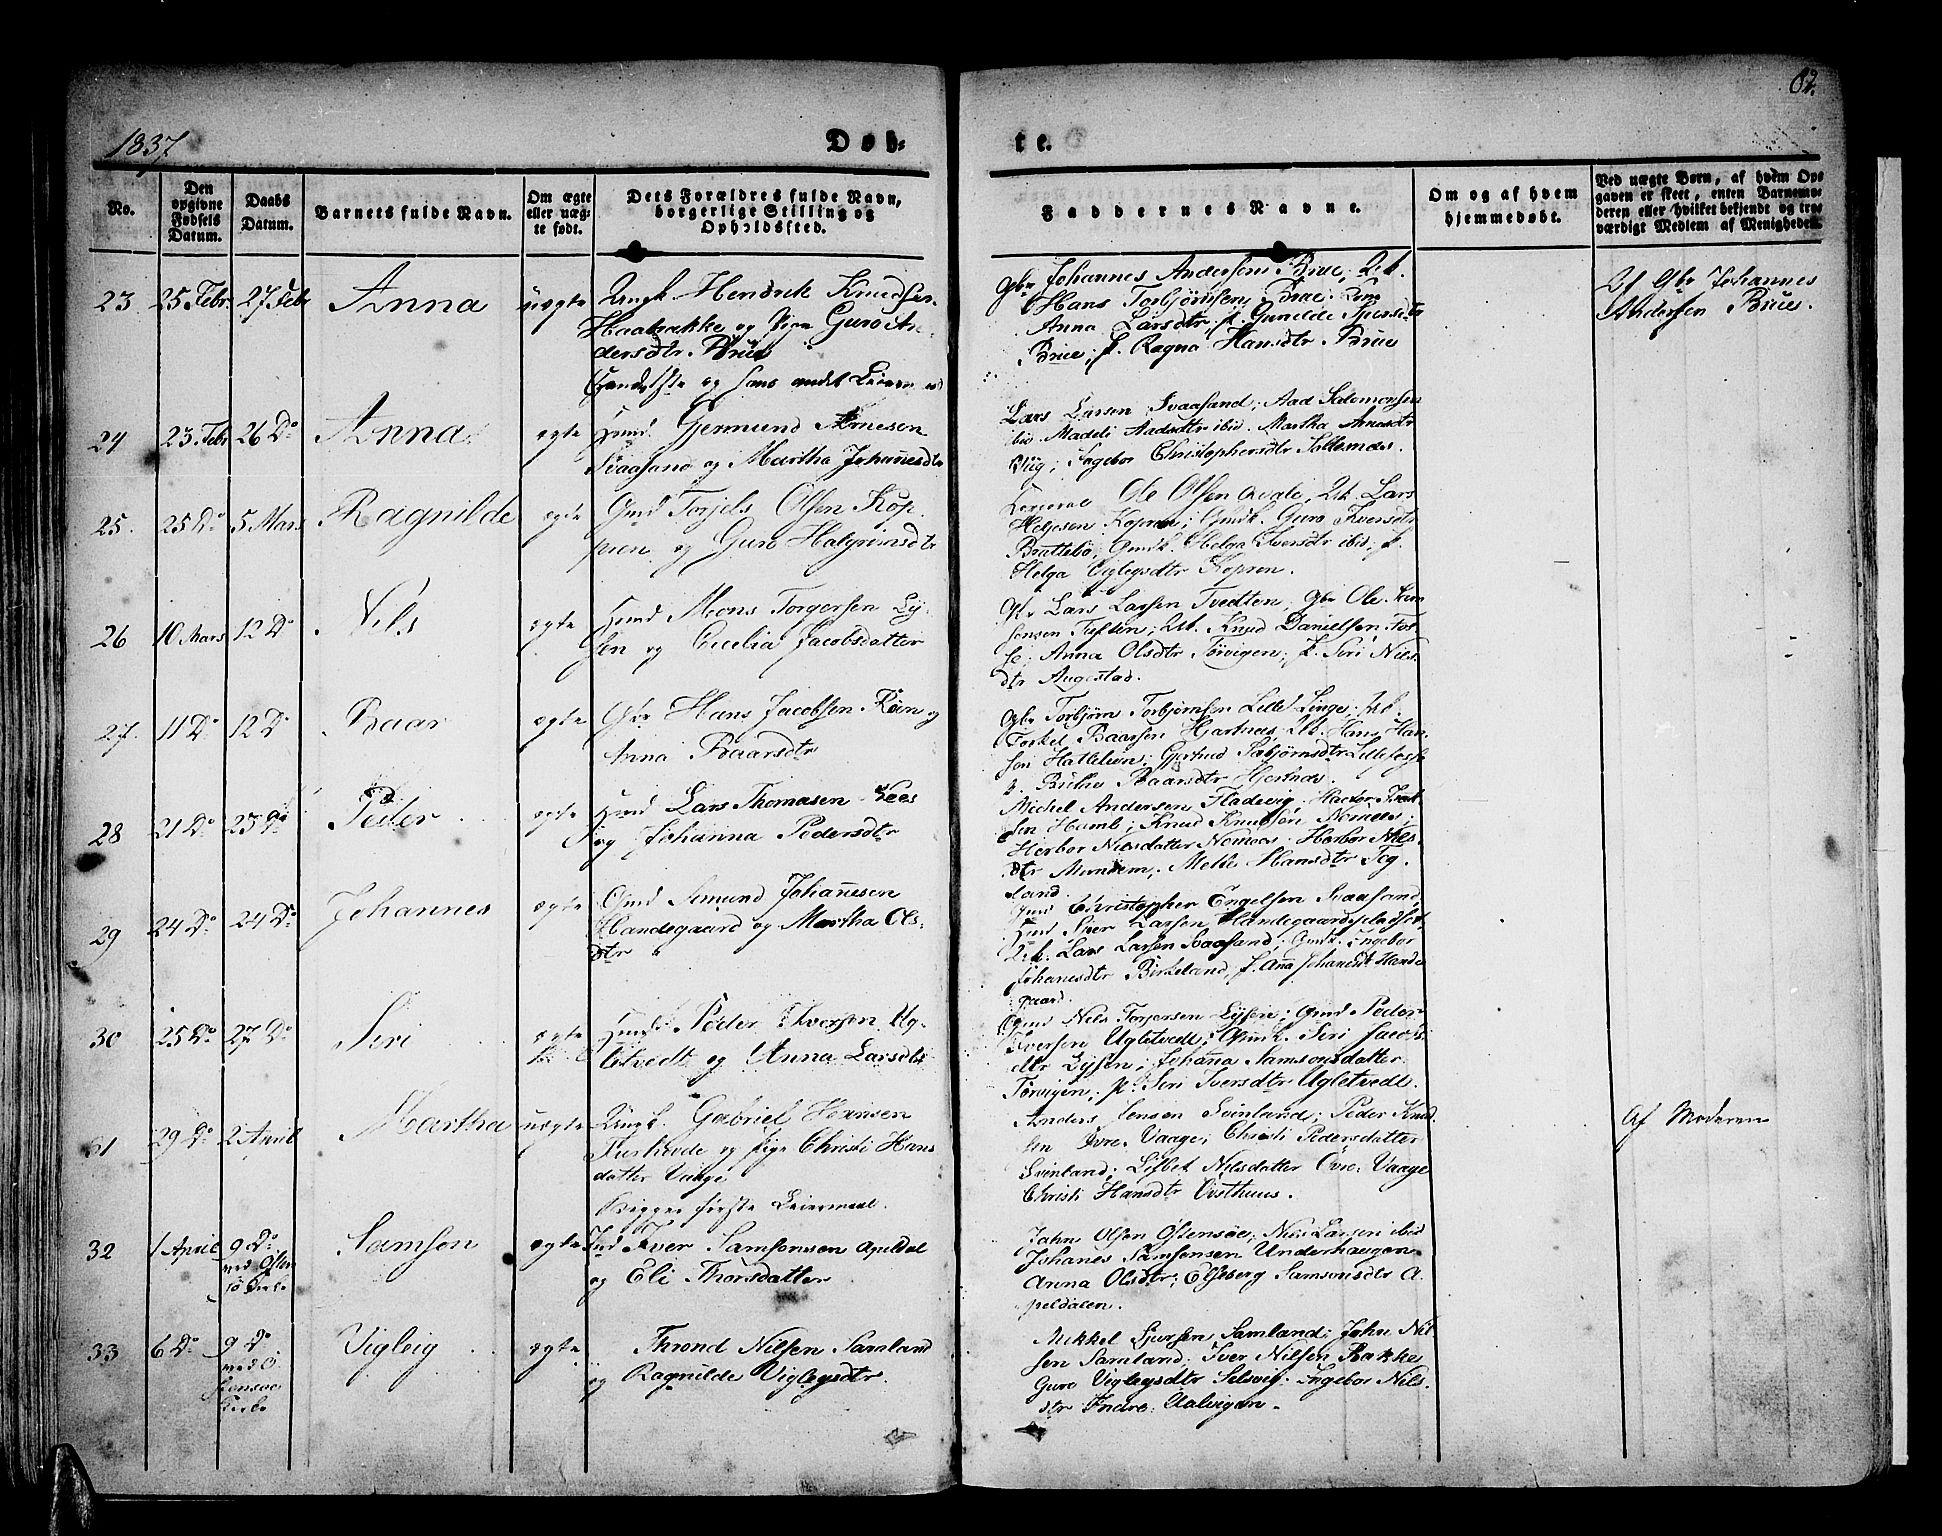 82.
1837
Døb-
te.
No.
Den opgivne Fødsels Datum.
Daabs Datum.
Barnets fulde Navn.
Om ægte eller uæg-te født.
Dets Forældres fulde Navn, borgerlige Stilling og Opholdssted.
Faddernes Navne.
Om og af hvem hjemmedøbt.
Ved uægte Børn, af hvem Op-
gaven er skeet, enten Barnemo-
deren eller hvilket bekjendt og tro-
værdigt Medlem af Menigheden.
23 25 Febr. 27 Febr Anna uægte Ungk Hendrik Knudsen
Haabakke og Pige Guro An-
dersdtr. Brue
og hans andet Leierm
Gbr Johannes Andersen Brue; Uk.
Hans Torbjørnsen Brue; Kone
Anna Larsdtr, p. Gunilde Sjursdtr
Brue; p. Ragna Hansdtr Brue
Af Gbr Johannes
Andersen Brue.
24 23 Febr 26 Do Anna ægte Huusmd. Germund Arnesen
Svaasand og Martha Johanesdtr
Lars Larsen Svaasand; Aad Salomonsen
ibid. Madeli Aadsdtr ibid. Martha Arnesdtr
Viig; Ingebor Christophersdtr
25. 25 Do 5 Mars Ragnilde ægte Gmd Torjels Olsen Kop-
pren og Guro Halgrimsdtr
Ole Olsen Qvale, Uk. Lars
Helgesen Kopren; Gmdk. Guro Iversdtr
Brattebø, Gmdk. Helga Iversdtr ibid; p.
Helga Viglegsdtr Kopren.
26 10 Mars 12 Do Nels ægte Huusmd Mons Torgersen Ly-
sen og Cecelia Jacobsdatter
Gbr Lars Larsen Tvedten; Gbr Ole Sam
sonsen Tufsten; Uk. Knud Danielsen Fos-
se; Anna Olsdtr Torvigen; p. Siri Niels
dtr Augestad.
27. 11 Do 12 Do Baar ægte Gbr Hans Jacobsen Røen og
Anna Baarsdtr
Gbr Torbjørn Torbjørnsen Lille Linge; Uk.
Torkel Baarsen Hartnes; Uk. Hans Han-
sen Hatleløen; Gjertrud Torbjørnsdtr
p. Brithe Baarsdtr Hertnes.
28 21 Do 25 Do Peder ægte Huusmd Lars Thomasen Nees
og Johanna Pedersdtr
Michel Andersen Fladevig;
sen Hamb; Knud Knudsen Nornæs;
Herbor Nilsdatter Nornæs. Herbor Niels
dtr Mundem; Melke Hansdtr Teg
land.
29 24 Do 24 Do Johannes ægte Gmd Simund Johanesen
Handegaard og Martha Ols-
dtr
Gmd Christopher Engelsen Svaasand,
Huusmd Sjur Larsen Handegaard
Uk. Lars Larsen Svaasand; Gmdk. Ingebor
Johanesdtr Birkeland, p. Ana Johanesdtr Hande
gaard.
30 25 Do 27 Do Siri ægte Huusmd Peder Iversen Ug-
letvedt og Anna Larsdtr
Gmd Nils Torjersen Lysen; Gmd Peder
Iversen Ugletvedt; Gmdk. Siri Jacobs
dtr Lysen; Johanna Samsonsdatter
Torvigen; p. Siri Iversdtr Ugletvedt.
31 29 Do 2 April Martha uægte Ungk. Gabriel Hansen
og Pige Christi Hans
datter Vaage
Begges første Leiermaal.
Anders Jensen Svinland; Peder Knud
sen Øvre Vaage; Christi Pedersdatter
Svinland; Lisbet Nilsdatter Øvre Vaage
Christi Hansdtr Østhuus.
Af Moderen
32 1 April 9 Do
ved Østen
sø Kirke Samson ægte Iver Samsonsen Apeldal
og Eli Thorsdatter
John Olsen Østensøe; Nils Larsen ibid
Johanes Samsonsen Underhaugen
Anna Olsdtr; Elsebeg Samsonsdtr A
peldalen.
33 6 Do 9 Do
ved Ø
stensøe
Kirke Vigleig ægte Thrond Nilsen Samland
og Ragnilde Viglegsdtr.
Mikkel Sjursen Samland; John Nil
sen Samland; Iver Nilsen Hakke
Guro Viglegsdtr Selsvig; Ingebor Nils-
dtr Indre Aalvigen